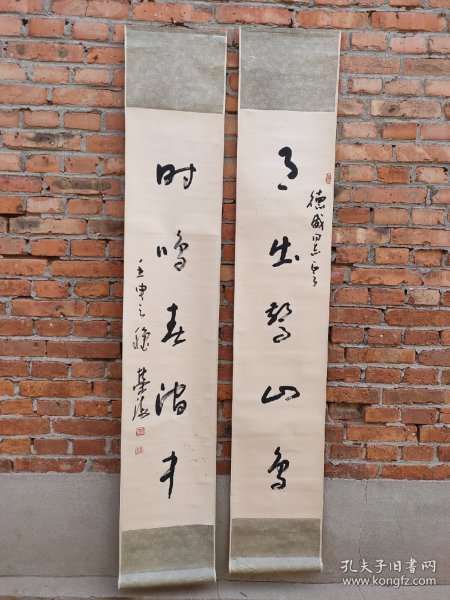 月出驚山鳥
德威同志正之
时鳴春澗中
壬申之秋
孔夫子旧书网
www.kongfz.com